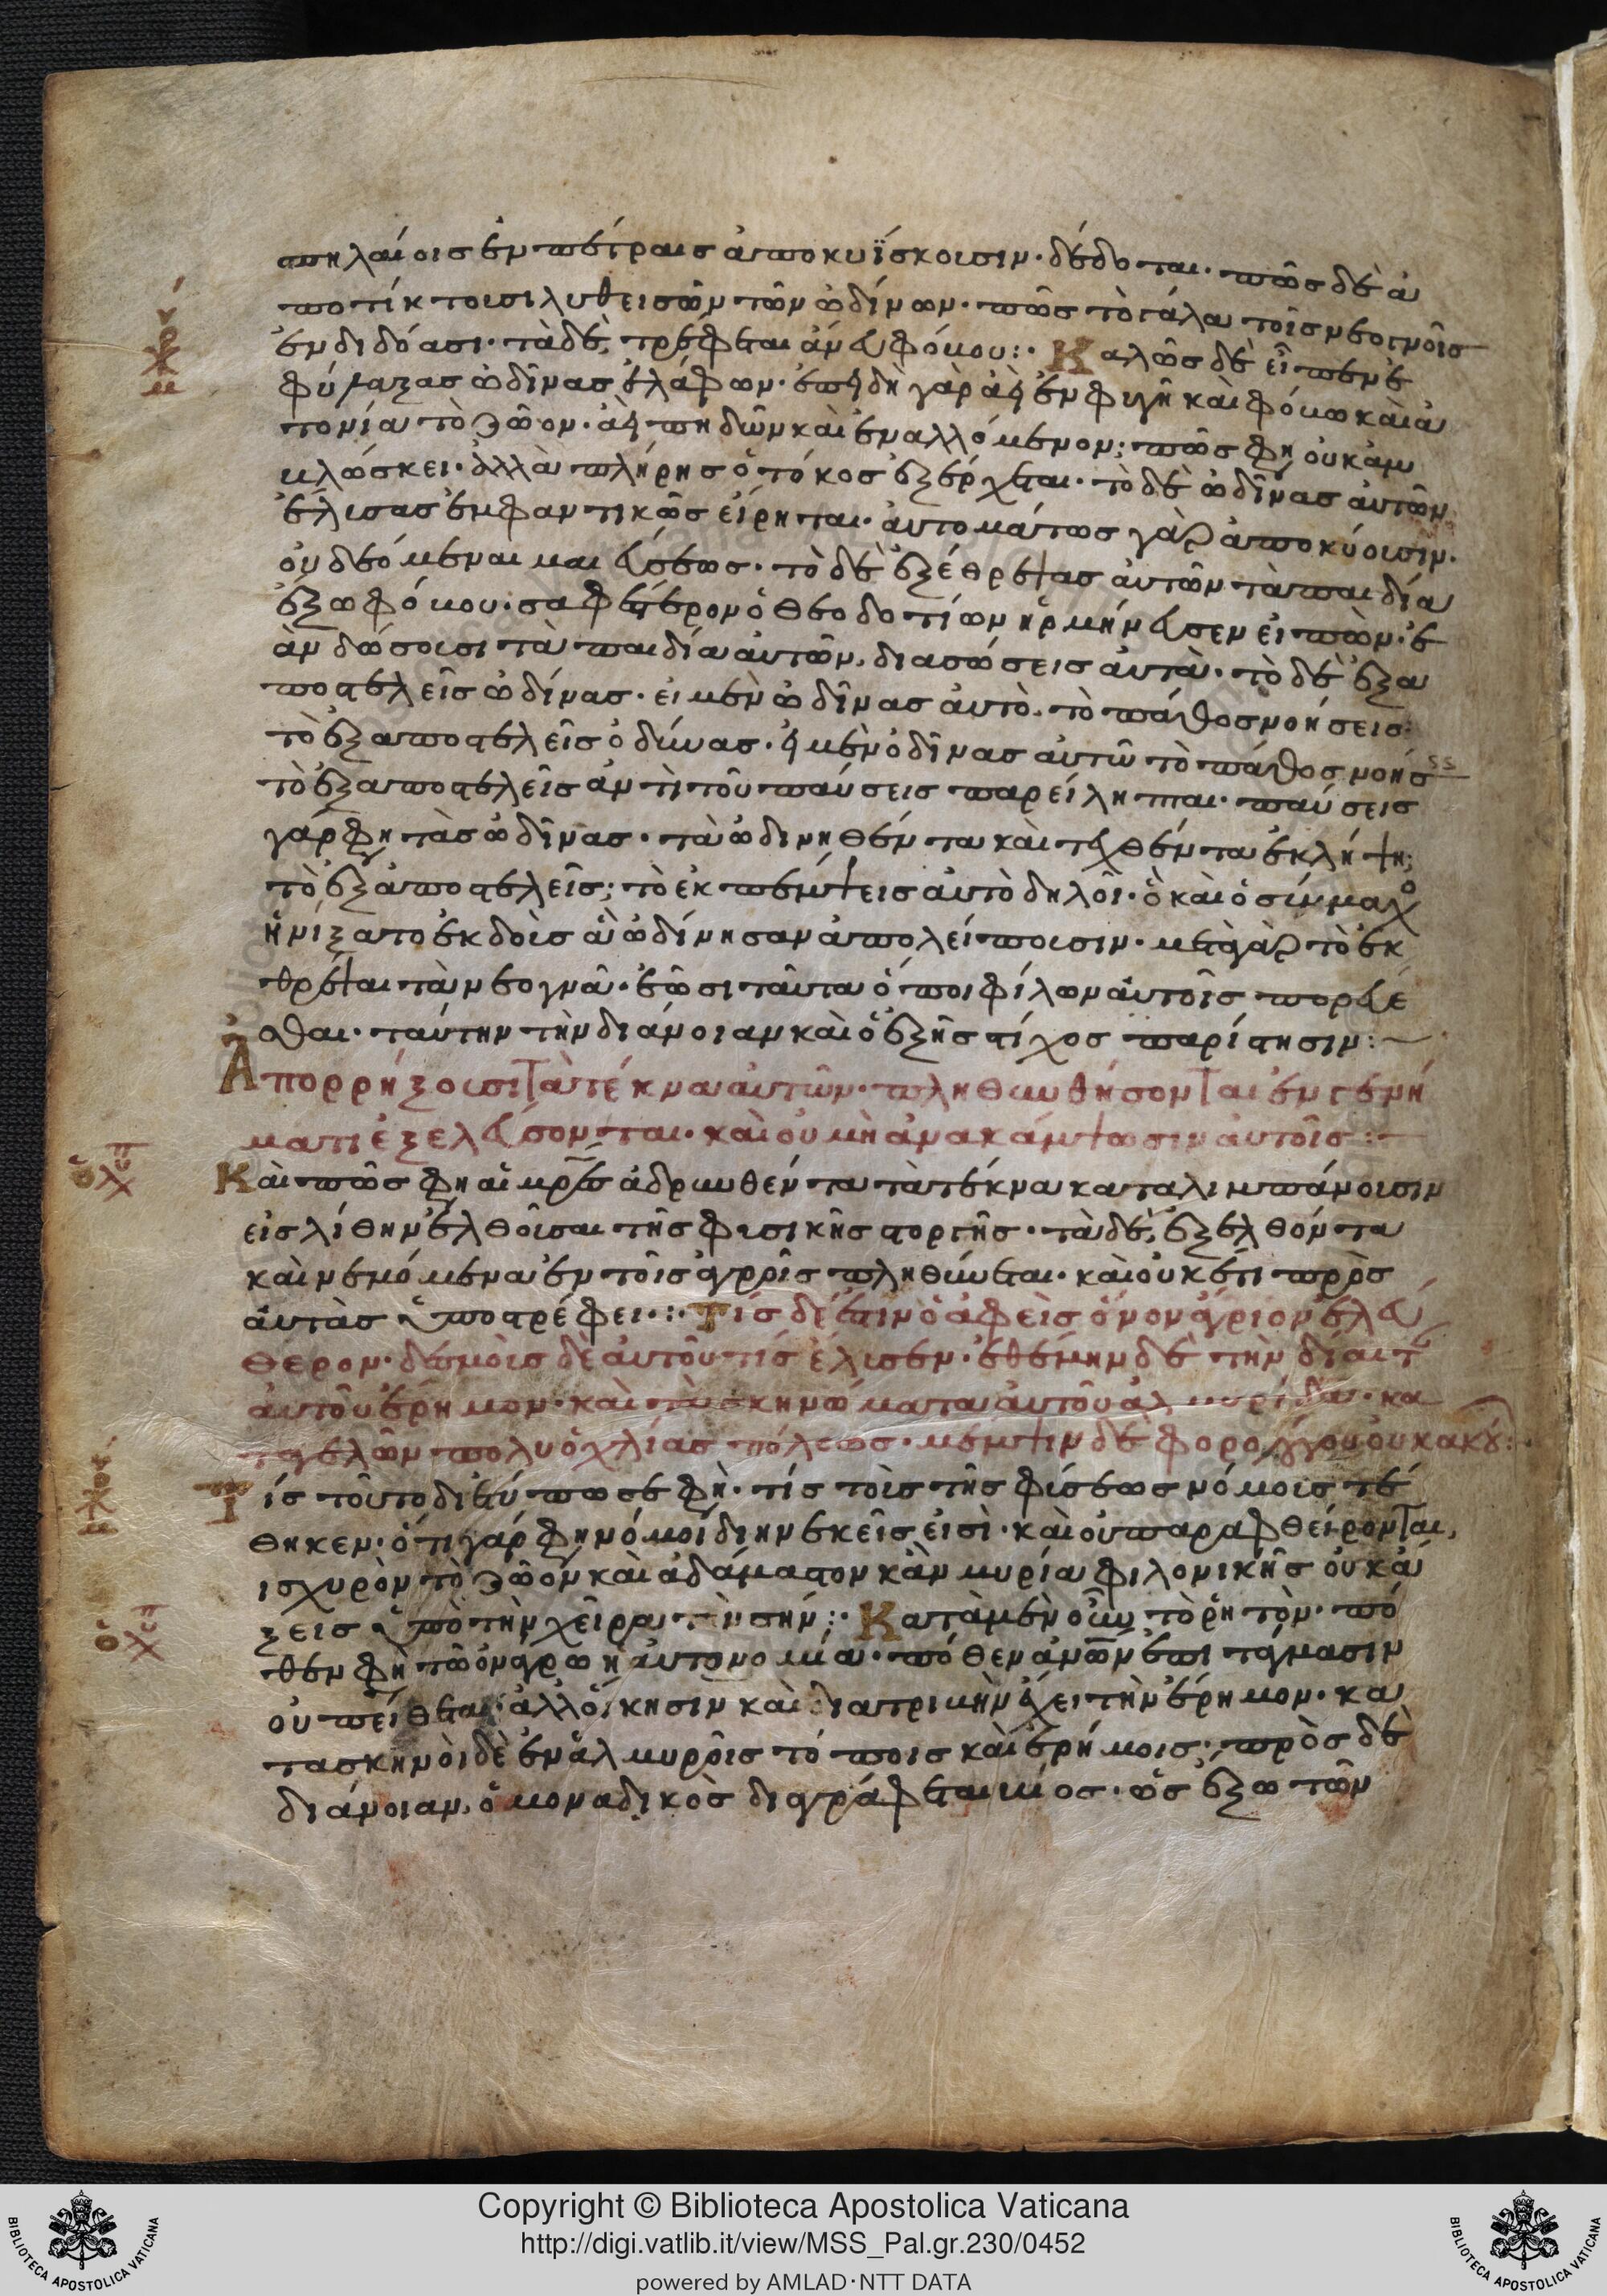 πηλαίοις ἐν πέτραις ἀποκυΐσκουσιν· δέδοται· πῶς δὲ ἀ
ποτίκτουσι λυθεισῶν τῶν ὠδίνων· πῶς τὸ γάλα τοῖς νεογνοῖς
ἐνδιδόασι· τὰ δὲ, τρέφεται ἄνευ φόβου:· Καλῶς δὲ εἶπεν ἐ
φύλαξας ὠδῖνας ἐλάφων· ἐπειδὴ γὰρ ἀεὶ ἐν φυγῆ καὶ φόβω καὶ ἀ
γωνία τὸ ζῶον· ἀεὶ πηδῶν καὶ ἐναλλόμενον; πῶς φη οὐκ ἀμ
βλώσκει· ἀλλὰ πλήρης ὁ τόκος ἐξέρχεται· τὸ δὲ ὠδῖνας αὐτῶν
ἔλυσας ἐμφαντικῶς εἴρηται· αὐτομάτως γὰρ ἀποκύουσιν·
οὐ δεόμεναι μαιεύσεως· τὸ δὲ ἐξέθρεψας αὐτῶν τὰ παιδία
ἔξω φόβου· σαφέστερον ὁ Θεοδοτίων ἡρμήνευσεν εἰπὼν· ἐ
ὰν δώσουσι τὰ παιδία αὐτῶν, διασώσεις αὐτὰ· τὸ δὲ ἐξα
ποστελεῖς ὠδίνας· εἰ μὲν ὠδῖνας αὐτὸ τὸ πάθος νοήσεις·
τὸ ἐξαποστελεῖς ὀδύνας· εἰ μὲν ὀδῖνας αὐτῶ τὸ πάθος νοήσ
τὸ ἐξαποστελεῖς ἀντὶ τοῦ παύσεις παρείληπται· παύσεις
γάρ φη τὰς ὠδῖνας· τὰ ὠδινηθέντα καὶ τεχθέντα ἐκλήψη;
τὸ ἐξαποστελεῖς; τὸ ἐκπέμψεις αὐτὸ δηλοῖ· ὃ καὶ ὁ σύμμαχο
ἠνίξατο ἐκδοὺς ἃ ὠδίνησαν ἀπολείπουσιν· μετὰ γὰρ τὸ ἐκ
θρέψαι τὰ νεογνὰ· ἐῶσι ταῦτα ὅποι φίλον αὐτοῖς πορεύε
σθαι· ταύτην τὴν διάνοιαν καὶ ὁ ἑξῆς στίχος παρίστησιν:
Ἀπορρήξουσι τὰ τέκνα αὐτῶν· πληθυνθήσονται ἐν γενή
ματι ἐξελεύσονται· καὶ οὐ μὴ ἀνακάμψωσιν αὐτοῖς:
Καὶ πῶς φη αἱ μρες ἁδρυνθέντα τὰ τέκνα καταλιμπάνουσιν
εἰς λίθην ἐλθοῦσαι τῆς φυσικῆς στοργῆς· τὰ δὲ, ἐξελθόντα
καὶ νεμόμενα ἐν τοῖς ἀγροῖς πληθύνεται· καὶ οὐκέτι πρὸς
αὐτὰς ὑποστρέφει:· Τίς δέ ἐστιν ὁ ἀφεὶς ὄνον ἄγριον ἐλεύ
θερον· δεσμοὺς δὲ αὐτοῦ τίς ἔλυσεν· ἐθέμην δὲ τὴν δίαιτ
αὐτοῦ ἔρημον· καὶ τὰ σκηνώματα αὐτοῦ ἁλμυρίδα· κα
ταγελῶν πολυοχλίας πόλεως· μέμψιν δὲ φορολόγου οὐκ ἀκού:·
Τίς τοῦτο διετύπωσε φὴ· τίς τοὺς τῆς φύσεως νόμους τέ
θηκεν· ὅτι γάρ φη νόμοί διηνεκεῖς εἰσὶ· καὶ οὐ παραφθείρονται,
ισχυρὸν τὸ ζῶόν καὶ ἀδάμαστον κἂν μυρία φιλονικῆς οὐκ ἄ
ξεις ὑπὸ τὴν χεῖρα τὴν σήν:· Κατὰ μὲν οὖν τὸ ῥητὸν· πό
θεν φὴ τῶ ὀνάγρω ἡ αὐτονομία· πόθεν ἀνῶν ἐπιτάγμασιν
οὐ πείθεται· ἀλλ' οἴκησιν καὶ διατριβὴν ἔχει τὴν ἔρημον· κα
τασκηνοῖ δὲ ἐν ἁλμυροῖς τόποις καὶ ἐρήμοις· πρὸς δὲ
διάνοιαν, ὁ μοναδικὸς διαγράφεται βίος· ὡς ἔξω τῶν
Copyright © Biblioteca Apostolica Vaticana
http://digi.vatlib.it/view/MSS_Pal.gr.230/0452
powered by AMLAD·NTT DATA
BIBLIOTECA APOSTOLICA VATICANA
BIBLIOTECA APOSTOLICA VATICANA